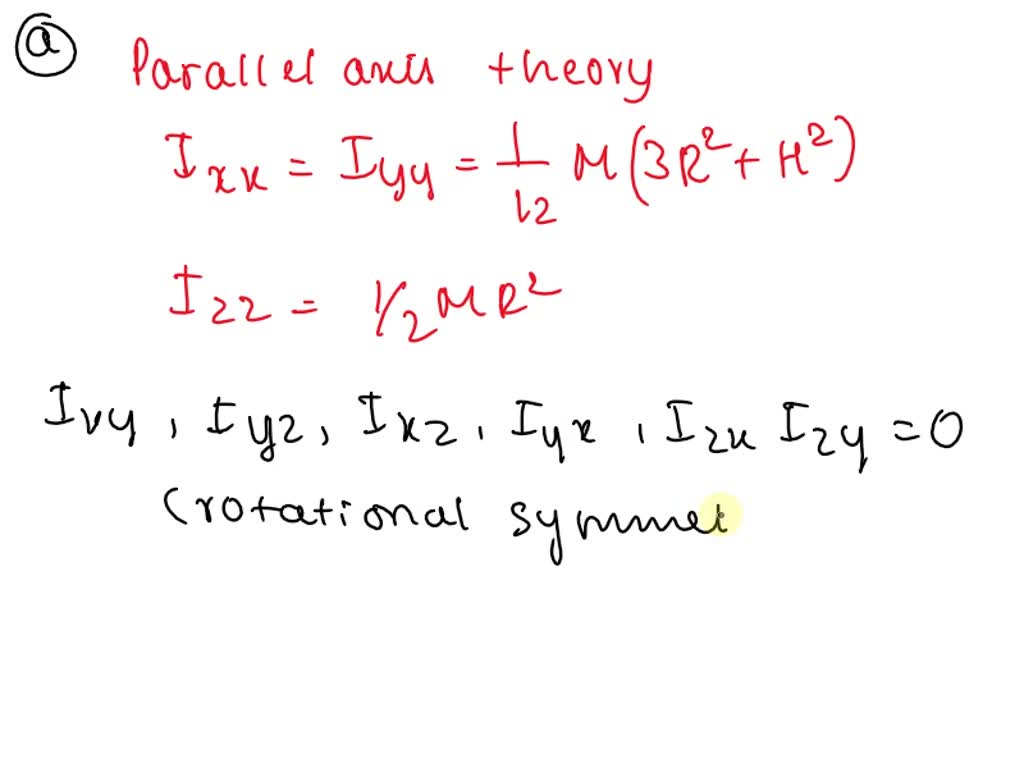 a
Parallel axis theory
Ixx = Iyy = 1/12 M(3R² + H²)
Izz = 1/2 MR²
Ixy, Iyz, Ixz, Iyx, Izx Izy = 0
(rotational symmet